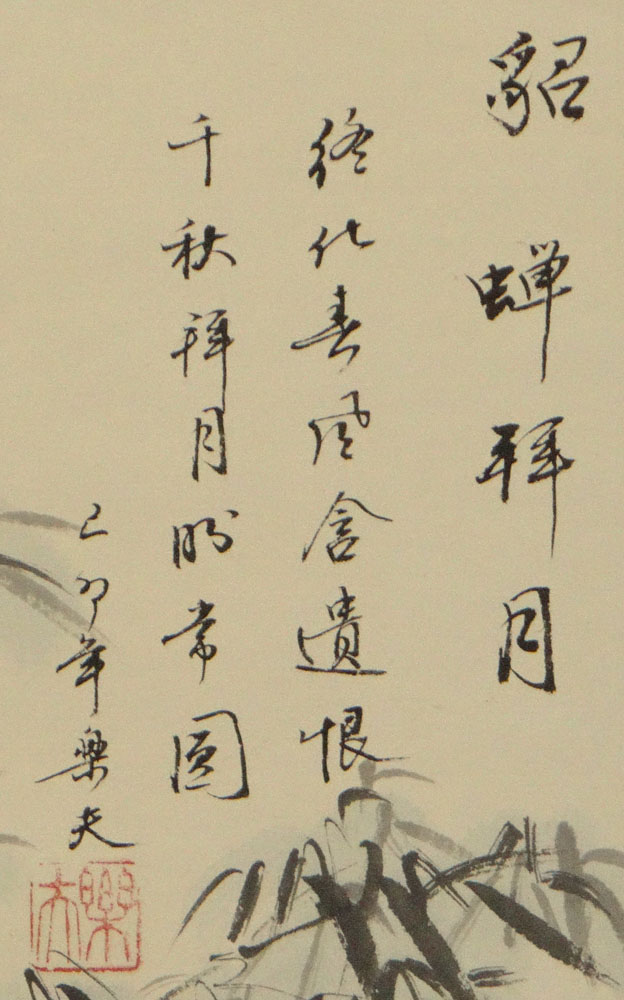 貂蟬拜月
終化春風含遺恨
千秋拜月盼常圓
己卯年樂夫
樂夫